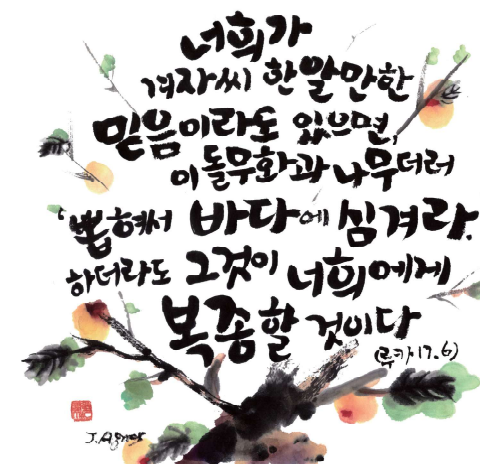 너희가
겨자씨 한알만한
믿음이라도 있으면,
이 돌무화과 나무더러
'뽑혀서 바다에 심겨라.
하더라도 그것이 너희에게
복종할 것이다
(루카 17.6)
J. Agnes